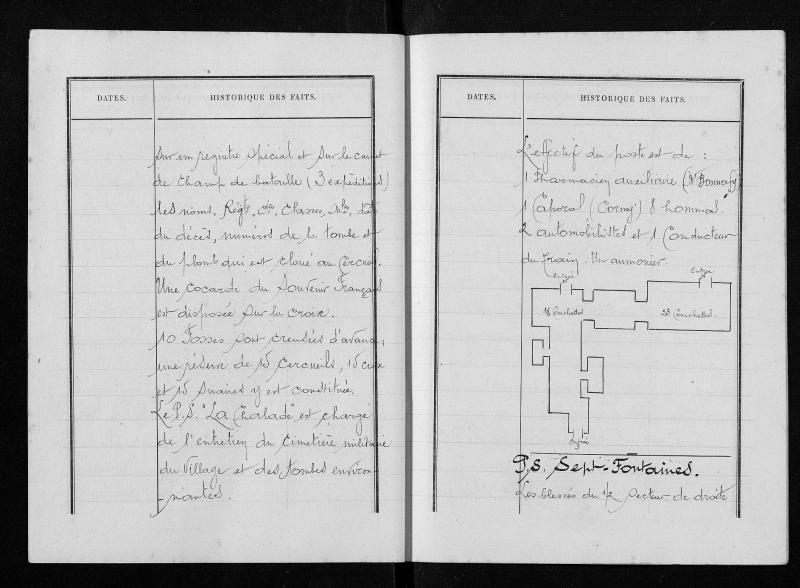 DATES.
HISTORIQUE DES FAITS.
sur un registre spécial et sur le carnet
de Champ de bataille (3 expéditions)
les noms, Régts, Cies, Classes, Mles, date
du décès, numéros de la tombe et
du plomb qui est cloué au Cercueil.
Une cocarde du Souvenir Français
est disposée sur la croix.
10 Fosses sont creusées d'avance,
une réserve de 15 Cercueils, 15 croix
et 15 suaires y est constituée.
Le P.S. "La Chalade" est chargé
de l'entretien du Cimetière militaire
du Village et des tombes environ-
-nantes.
DATES.
HISTORIQUE DES FAITS.
L'effectif du poste est de :
1 Pharmacien auxiliaire (Mr Bonnafy)
1 Caporal (Cornej) 8 hommes.
2 automobilistes et 1 Conducteur
du Train. Un aumonier.
Entrée
Entrée
18 Couchettes
28 Couchettes.
Entrée
P.S. Sept-Fontaines.
Les blessés du 1/2 Secteur de droite